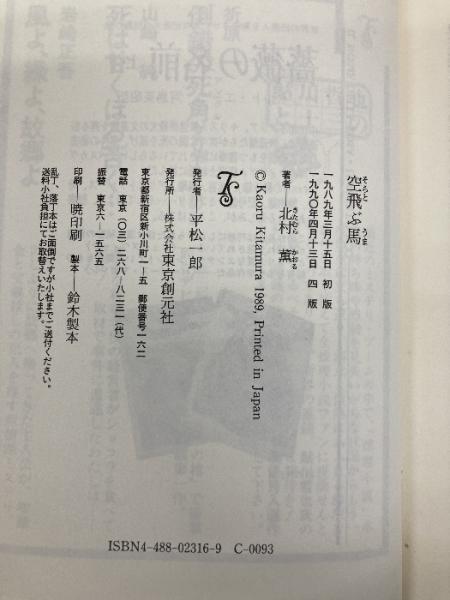 空飛ぶ馬
そらとうま
一九八九年三月十五日 初版
一九九〇年四月十三日 四版
著者 北村薫
きたむらかおる
© Kaoru Kitamura 1989, Printed in Japan
TS
発行者─平松一郎
発行所─株式会社東京創元社
東京都新宿区新小川町一─五 郵便番号一六二
電話 東京(〇三)二六八─八二三一(代)
振替 東京六─一五六五
印刷─暁印刷 製本─鈴木製本
乱丁、落丁本はご面倒ですが小社までご送付ください。
送料小社負担にてお取替えいたします。
ISBN4-488-02316-9 C-0093